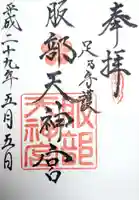 奉拝
足の守護
服部天神宮
平成二十九年五月五日
服部天神宮